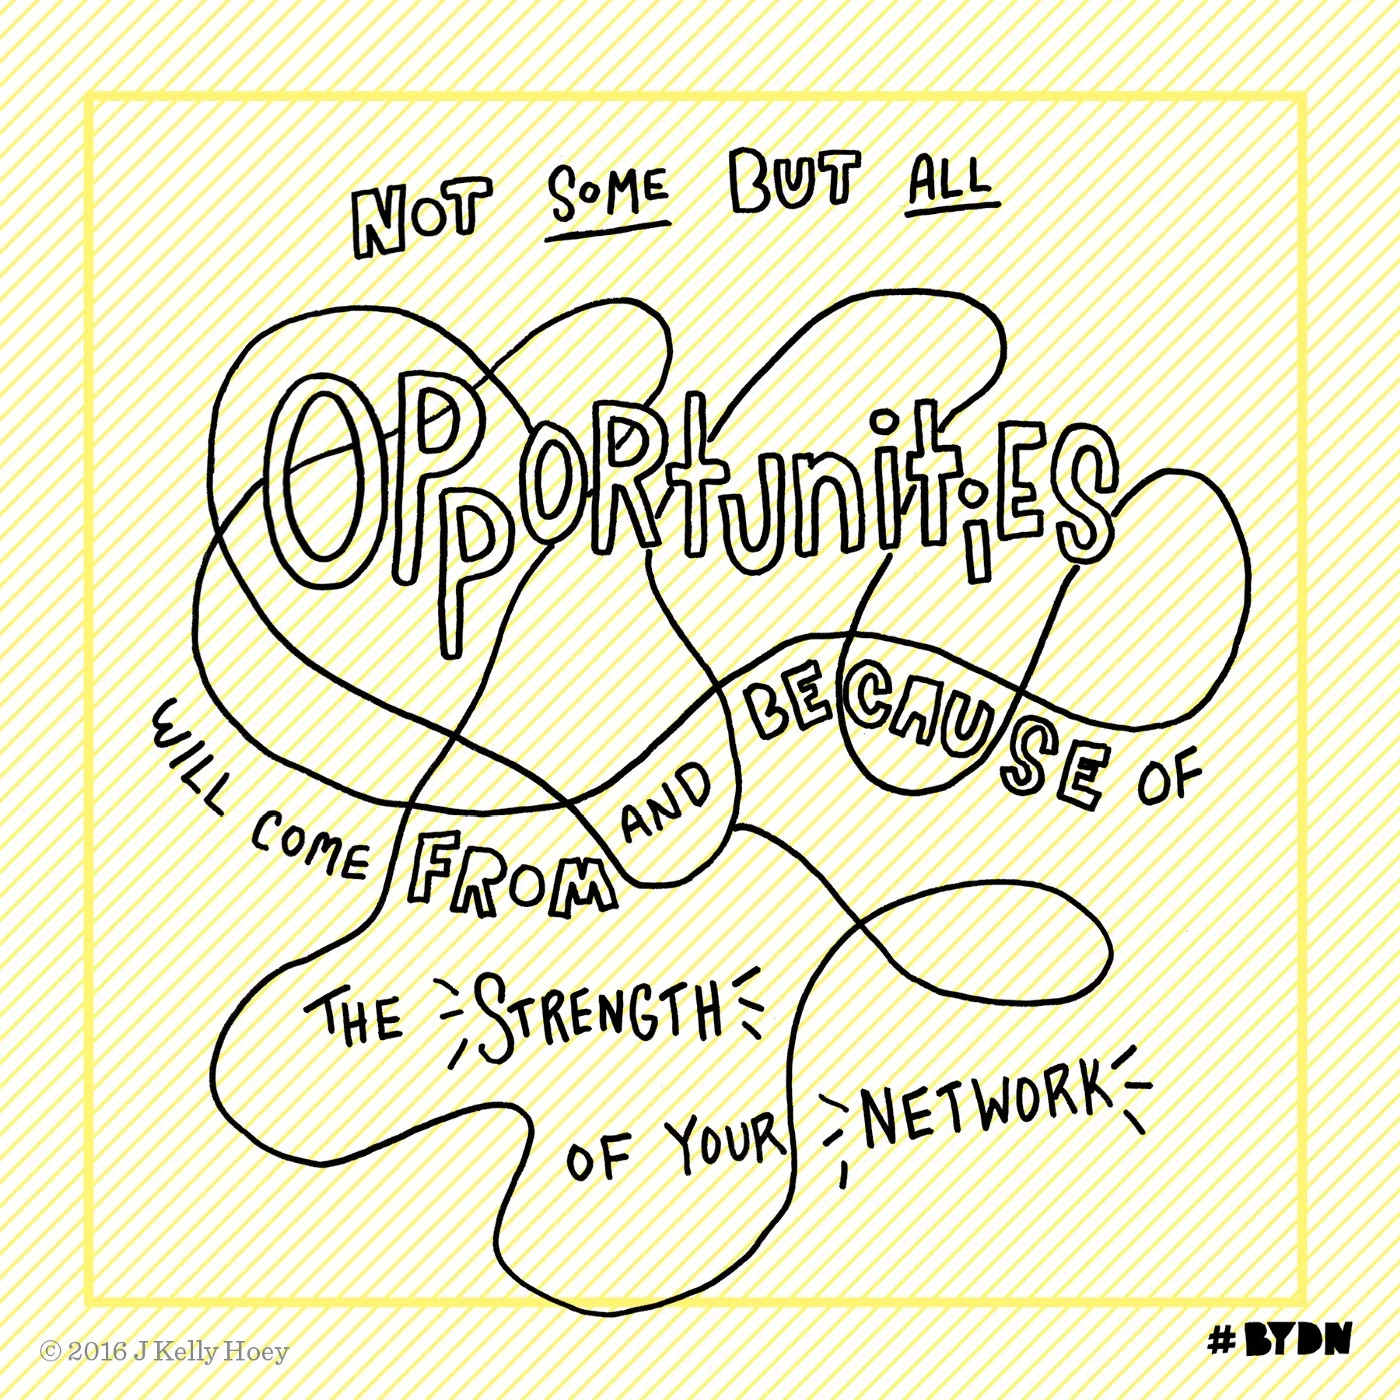 NOT SOME BUT ALL
OPPORtUniTiES
WILL COME FROM AND BECAUSE OF
THE STRENGTH
OF YOUR NETWORK
© 2016 J Kelly Hoey
#BYDN